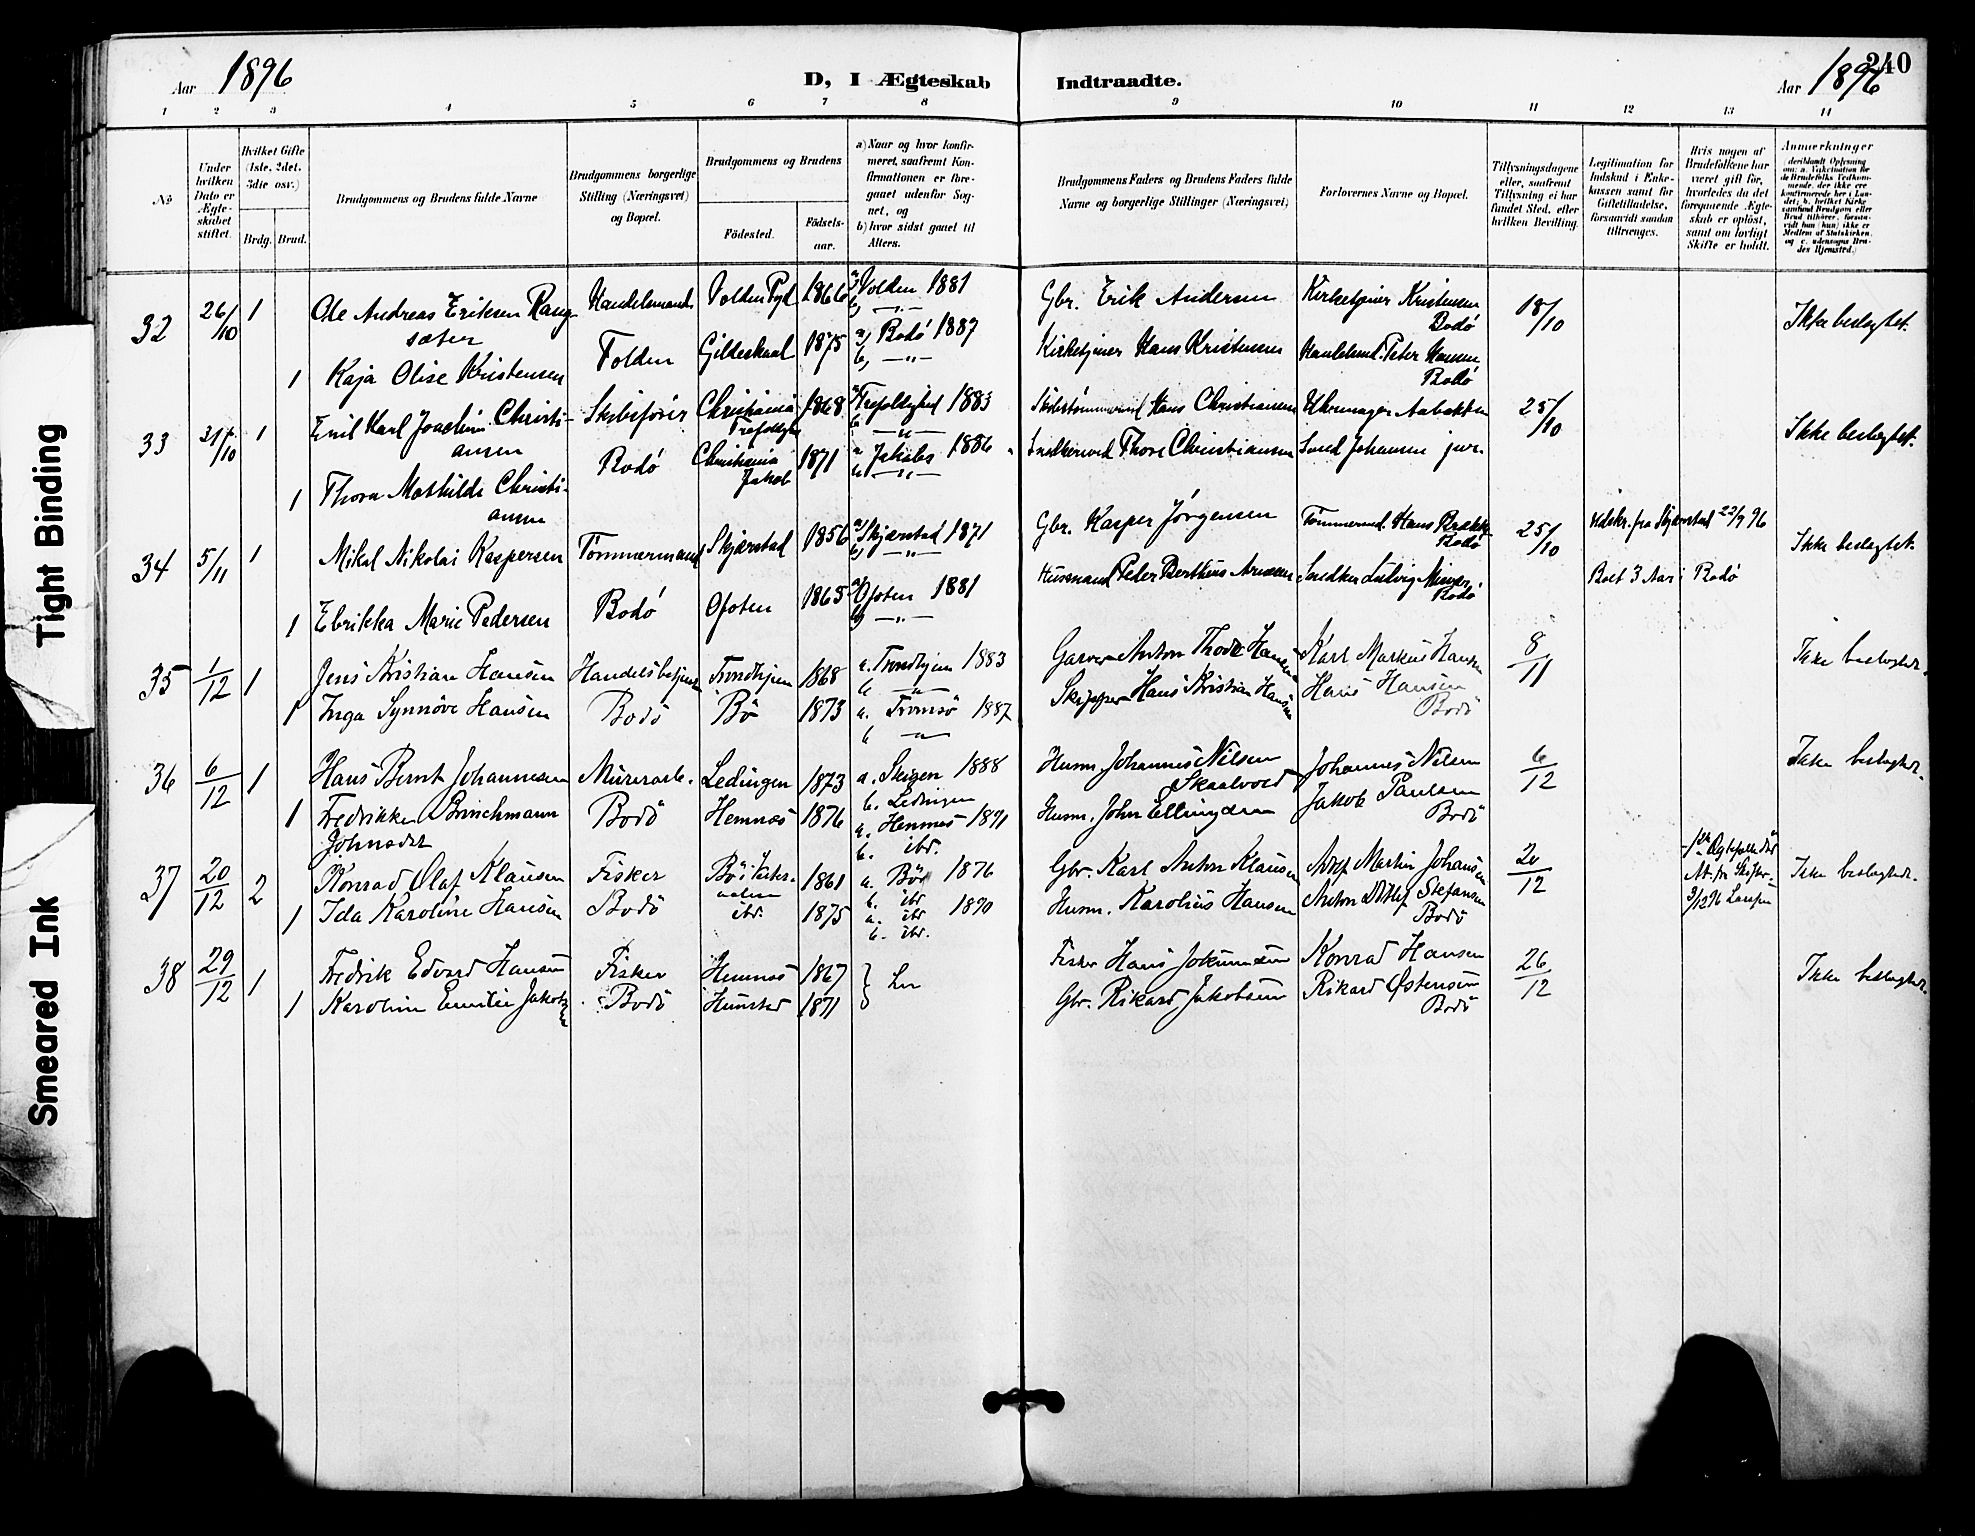 Tight Binding
Smeared Ink
Aar 1896
D, I Ægteskab Indtraadte.
Aar 1896
240
1 2 3 4 5 6 7 8 9 10 11 12 13 14
No
Under hvilken Dato er Ægteskabet stiftet.
Hvilket Gifte (1ste, 2det, 3die osv.)
Brdg. Brud.
Brudgommens og Brudens fulde Navne
Brudgommens borgerlige Stilling (Næringsvei) og Bopæl.
Brudgommens og Brudens
Födested.
Födselsaar.
a) Naar og hvor konfirmeret, saafremt Konfirmationen er foregaaet udenfor Sognet, og
b) hvor sidst gaaet til Alters.
Brudgommens Faders og Brudens Faders fulde Navne og borgerlige Stillinger (Næringsvei)
Forlovernes Navne og Bopæl.
Tillysningsdagene eller, saafremt Tillysning ei har fundet Sted, efter hvilken Bevilling.
Legitimation for Indskud i Enkekassen samt for Giftetilladelse, forsaavidt saadan tiltrænges.
Hvis nogen af Brudefolkene har været gift før, hvorledes da det foregaaende Ægteskab er opløst, samt om lovligt Skifte er holdt.
Anmerkninger
32 26/10 1 Ole Andreas Eriksen Rangsæter Handelsmand Folden 1866 a) Folden 1881 b) —"— Gbr. Erik Andersen Kirketjener Kristensen Bodö 18/10 Ikke beslægtet.
1 Kaja Olise Kristensen Folden Gildeskaal 1875 a) Bodö 1887 b) —"— Kirketjener Hans Kristensen Handelsmd. Peter Hansen Bodö
33 31/10 1 Emil Karl Joachim Christiansen Skibsförer Christiania Trefoldigh 1868 a Trefoldighed 1883 b —"— Hans Christiansen Uhrmager 25/10 Ikke beslægtet.
1 Thora Mathilde Christiansen Bodö Christiania Jakob 1871 a Jakobs 1886 b —"— Snedkersvend Thore Christiansen Johansen jun.
34 5/11 1 Mikal Nikolai Kaspersen Tömmermand Skjærstad 1856 a) Skjærstad 1871 b) —"— Gbr. Kasper Jörgensen Tömmermd. Hans Bodö 25/10 Udskr. fra Skjærstad 22/9 96 Ikke beslægtet.
1 Ebrikka Marie Pedersen Bodö Ofoten 1865 a) Ofoten 1881 b) —"— Husmand Peter Bertheus Arnesen Snedker Ludvig Bodö Boet 3 Aar i Bodö
35 1/12 1 Jens Kristian Hansen Handelsbetjent Trondhjem 1868 a. Trondhjem 1883 b —"— Garver Anton Thode Hansen Karl Markus Hansen 8/11 Ikke beslægtede.
1 Inga Synnöve Hansen Bodö Bö 1873 a. Tromsö 1887 b —"— Skipper Hans Kristian Hansen Hans Hansen Bodö
36 6/12 1 Hans Bernt Johannesen Murerarb. Lödingen 1873 a. Steigen 1888 b. Lödingen Husm. Johannes Nilsen Skaalvold Johannes Nilsen 6/12 Ikke beslægtede.
1 Fredrikke Brinchmann Johnsdtr Bodö Hemnæs 1876 a. Hemnæs 1891 b. ibr. Husm. John Ellingsen Jakob Paulsen Bodö
37 20/12 2 Konrad Olaf Klausen Fisker Bö i Vesteraalen 1861 a. Bö 1876 b. ibr Gbr. Karl Anton Klausen Adolf Martin Johansen 20/12 3/12 96 Ikke beslægtede.
1 Ida Karoline Hansen Bodö ibr. 1875 a. ibr 1890 b. ibr. Husm. Karolius Hansen Anton Ditlef Stefansen Bodö
38 29/12 1 Fredrik Edvard Hansen Fisker Hemnæs 1867 } her Fisker Hans Jokumsen Konrad Hansen 26/12 Ikke beslægtede.
1 Karoline Emilie Jakobsen Bodö Hunstad 1871 Gbr. Rikard Jakobsen Rikard Östensen Bodö